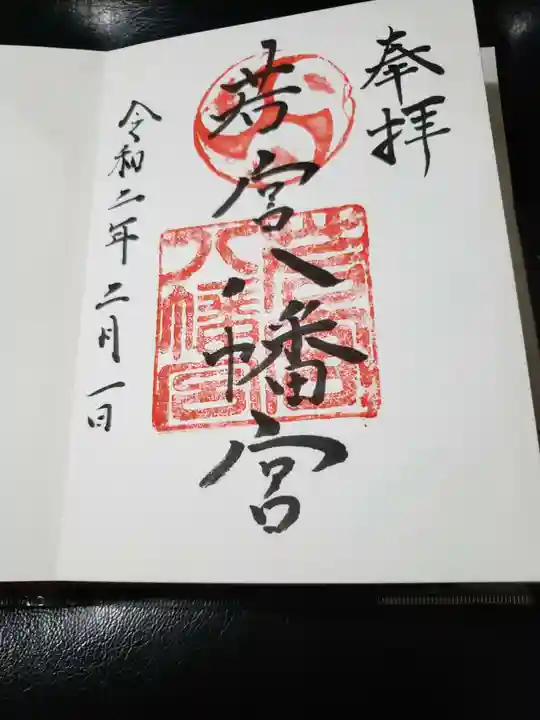 奉拝
若宮八幡宮
令和二年二月一日